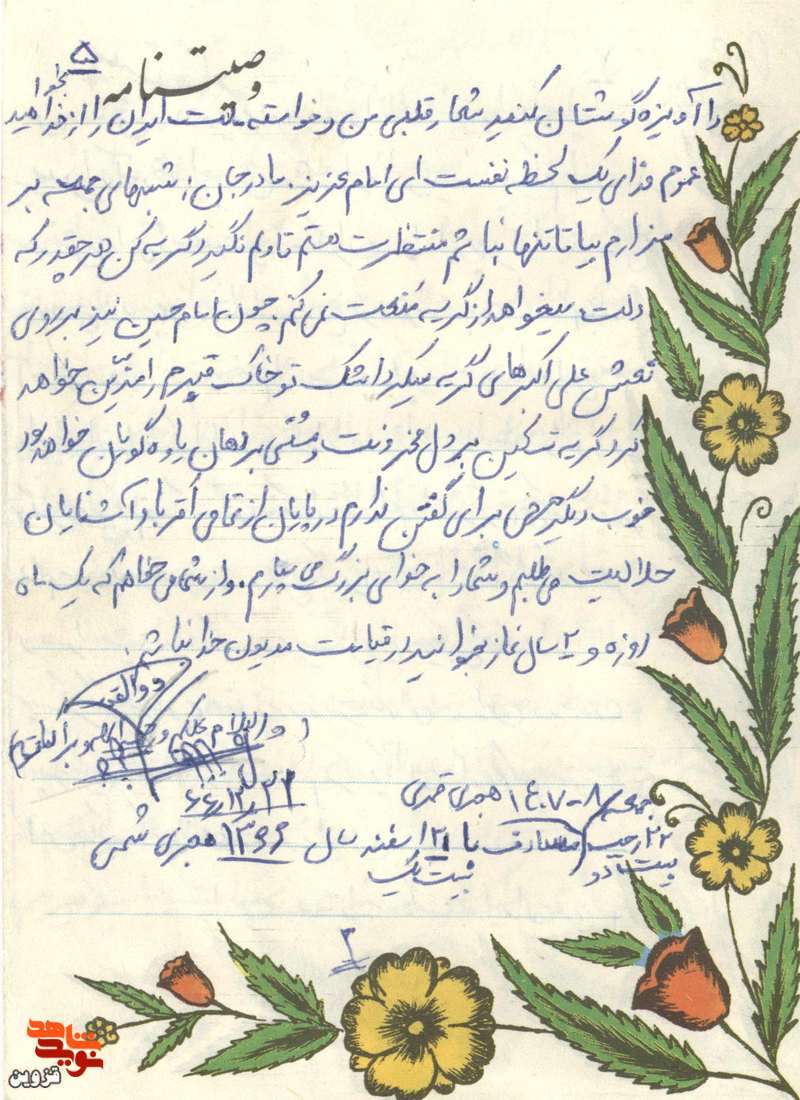 وصیتنامه
۵
را آویزه گوشتان کنید شعار قلبی من و خواسته ملت ایران را از خدا بخواهید
عموم فدای یک لحظه نفست ای امام عزیز. مادرجان: شبهای جمعه بر
مزارم بیا تا تنها نباشم منتظرت هستم تا دلم نگیرد گریه کن هر چقدر که
دلت میخواهد از گریه منعت نمی کنم چون امام حسین نیز بر روی
نعش علی اکبرهای گریه میکرد اشک تو خاک قبرم را متّین خواهد
کرد گریه تسکین بر دل محزونت و مُشتی بر دهان یاوه گویان خواهد بود
خوب دیگر عرضی برای گفتن ندارم در پایان از تمامی اقربا و آشنایان
حلالیت می طلبم و شما را به خدای بزرگ می سپارم. و از شما می خواهم که یک ماه
روزه و ۲ سال نماز بخوانید در قیامت مدیون خدا نباشم.
والسلام علیکم و
۶۶/۱۲/۲۱
جمعه ۱۴۰۷-۸ هجری قمری
۲۲ رجب مصادف با ۲۱ اسفند سال ۱۳۶۶ هجری شمسی
بیست و دو بیست یک
۳
شاهد
نوید
قزوین